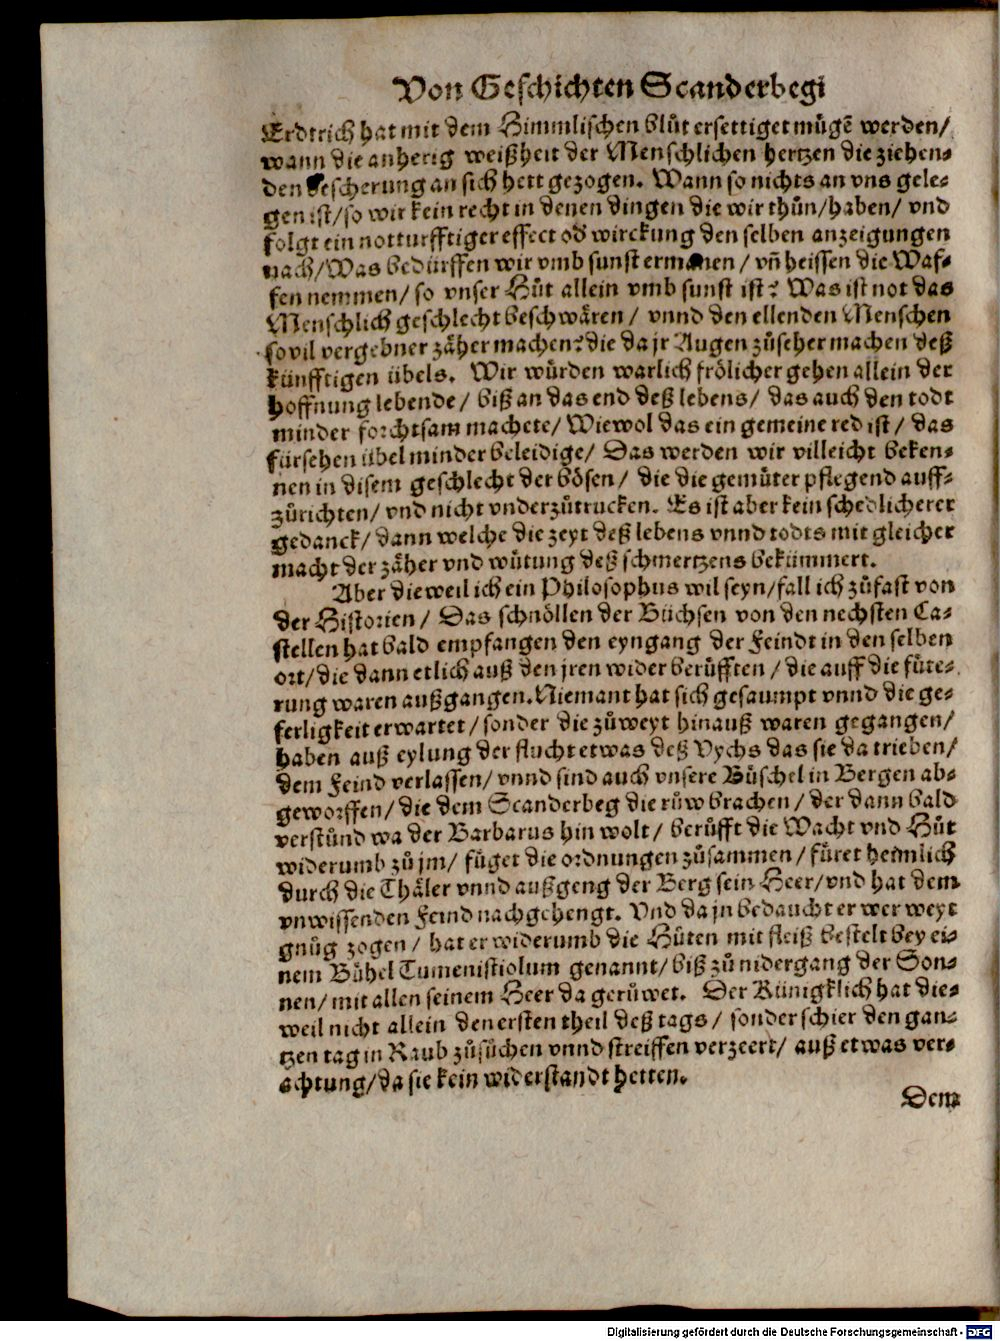 Von Geschichten Scanderbegi
Erdtrich hat mit dem Himmlischen blůt ersettiget mügẽ werden/
wann die anherig weißheit der Menschlichen hertzen die ziehen⸗
den bescherung an sich hett gezogen. Wann so nichts an vns gele⸗
gen ist/ so wir kein recht in denen dingen die wir thůn/ haben/ vnd
folgt ein notturfftiger effect od̕ wirckung den selben anzeigungen
nach/ Was bedürffen wir vmb sunst ermanen/ vñ heissen die Waf⸗
fen nemmen/ so vnser Hůt allein vmb sunst ist? Was ist not das
Menschlich geschlecht beschwären/ vnnd den ellenden Menschen
so vil vergebner zäher machen? die da jr Augen zůseher machen deß
künfftigen übels. Wir würden warlich frölicher gehen allein der
hoffnung lebende/ biß an das end deß lebens/ das auch den todt
minder forchtsam machete/ Wiewol das ein gemeine red ist/ das
fürsehen übel minder beleidige/ Das werden wir villeicht beken⸗
nen in disem geschlecht der bösen/ die die gemüter pflegend auff⸗
zůrichten/ vnd nicht vnderzůtrucken. Es ist aber kein schedlicherer
gedanck/ dann welche die zeyt deß lebens vnnd todts mit gleicher
macht der zäher vnd wůtung deß schmertzens bekümmert.
Aber dieweil ich ein Philosophus wil seyn/ fall ich zůfast von
der Historien/ Das schnöllen der Büchsen von den nechsten Ca⸗
stellen hat bald empfangen den eyngang der Feindt in den selben
ort/ die dann etlich auß den jren wider berůfften/ die auff die fůte⸗
rung waren außgangen. Niemant hat sich gesaumpt vnnd die ge⸗
ferligkeit erwartet/ sonder die zůweyt hinauß waren gegangen/
haben auß eylung der flucht etwas deß Vychs das sie da trieben/
dem Feind verlassen/ vnnd sind auch vnsere Büschel in Bergen ab⸗
geworffen/ die dem Scanderbeg die růw brachen/ der dann bald
verstůnd wa der Barbarus hin wolt/ berůfft die Wacht vnd Hůt
widerumb zů jm/ füget die ordnungen zůsammen/ füret heimlich
durch die Thäler vnnd außgeng der Berg sein Heer/ vnd hat dem
vnwissenden Feind nachgehengt. Vnd da jn bedaucht er wer weyt
gnůg zogen/ hat er widerumb die Hůten mit fleiß bestelt bey ei⸗
nem Bühel Tumenistiolum genannt/ biß zů nidergang der Son⸗
nen/ mit allen seinem Heer da gerůwet. Der Künigklich hat die⸗
weil nicht allein den ersten theil deß tags/ sonder schier den gan⸗
tzen tag in Raub zůsůchen vnnd streiffen verzeert/ auß etwas ver⸗
achtung/ da sie kein widerstandt hetten.
Dem
Digitalisierung gefördert durch die Deutsche Forschungsgemeinschaft - DFG